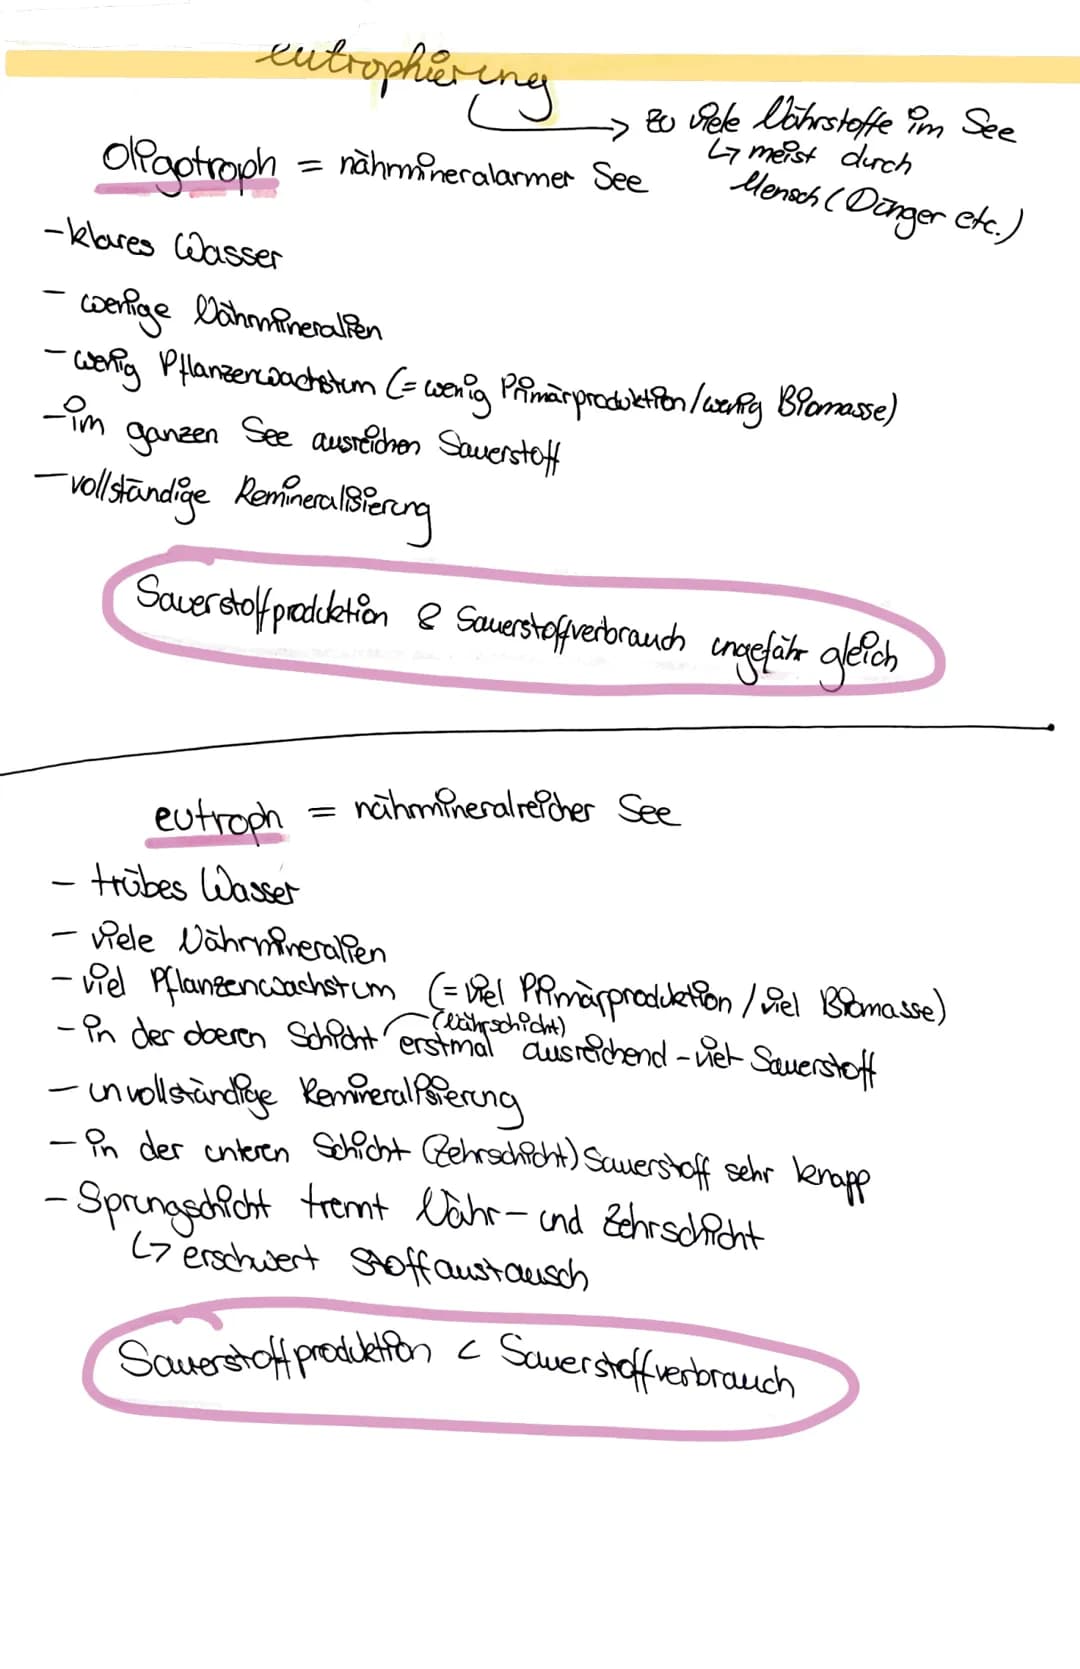 eutrophierung
→ zu viele Nährstoffe im See
↳ meist durch
Mensch (Dünger etc.)
Oligotroph = nährmineralarmer See
- klares Wasser
- wenige Nährmineralien
- wenig Pflanzenwachstum (= wenig Primärproduktion/wenig Biomasse)
- im ganzen See ausreichen Sauerstoff
- vollständige Remineralisierung
Sauerstoffproduktion & Sauerstoffverbrauch ungefähr gleich
eutroph = nährmineralreicher See
- trübes Wasser
- viele Nährmineralien
- viel Pflanzenwachstum (= viel Primärproduktion / viel Biomasse)
(Nährschicht)
- in der oberen Schicht erstmal ausreichend - viel Sauerstoff
- unvollständige Remineralisierung
- in der unteren Schicht (Zehrschicht) Sauerstoff sehr knapp
- Sprungschicht trennt Nähr- und Zehrschicht
↳ erschwert Stoffaustausch
Sauerstoffproduktion < Sauerstoffverbrauch